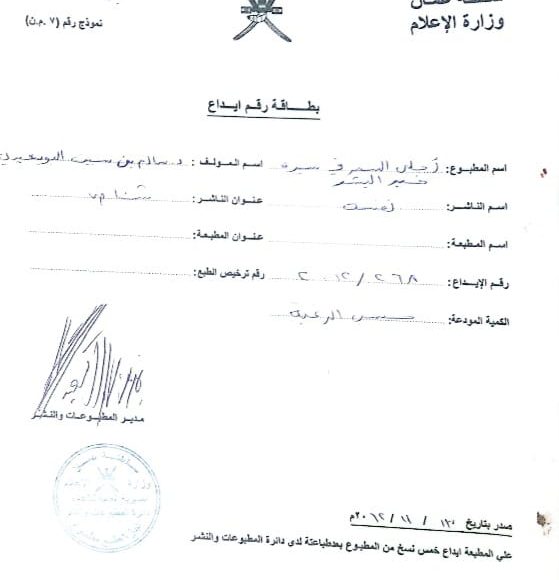 سلطنة عمان
وزارة الإعلام
نموذج رقم (٧ .م.ن)
بطاقة رقم ايداع
اسم المطبوع: أحلى السمر في سيرة خير البشر اسم المؤلف: د. سالم بن سيف
اسم الناشر: نفسه عنوان الناشر:
اسم المطبعة: عنوان المطبعة:
رقم الإيداع: ٢٠١٢/٢٦٨ رقم ترخيص الطبع:
الكمية المودعة: حسب الرغبة
مدير المطبوعات والنشر
صدر بتاريخ ١٣ / ١١ / ٢٠١٢م
على المطبعة ايداع خمس نسخ من المطبوع بعد طباعته لدى دائرة المطبوعات والنشر